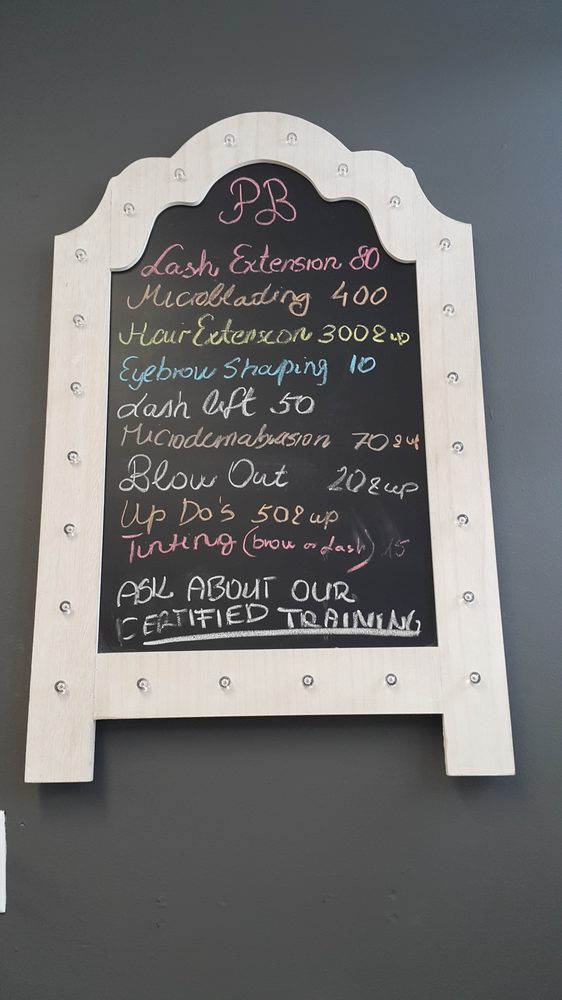 PB
Lash Extension 80
Microblading 400
Hair Extension 300 & up
Eyebrow Shaping 10
Lash lift 50
Microdermabrasion 70 & up
Blow Out 20 & up
Up Do's 50 & up
Tinting (brow or Lash) 15
ASK ABOUT OUR
CERTIFIED TRAINING